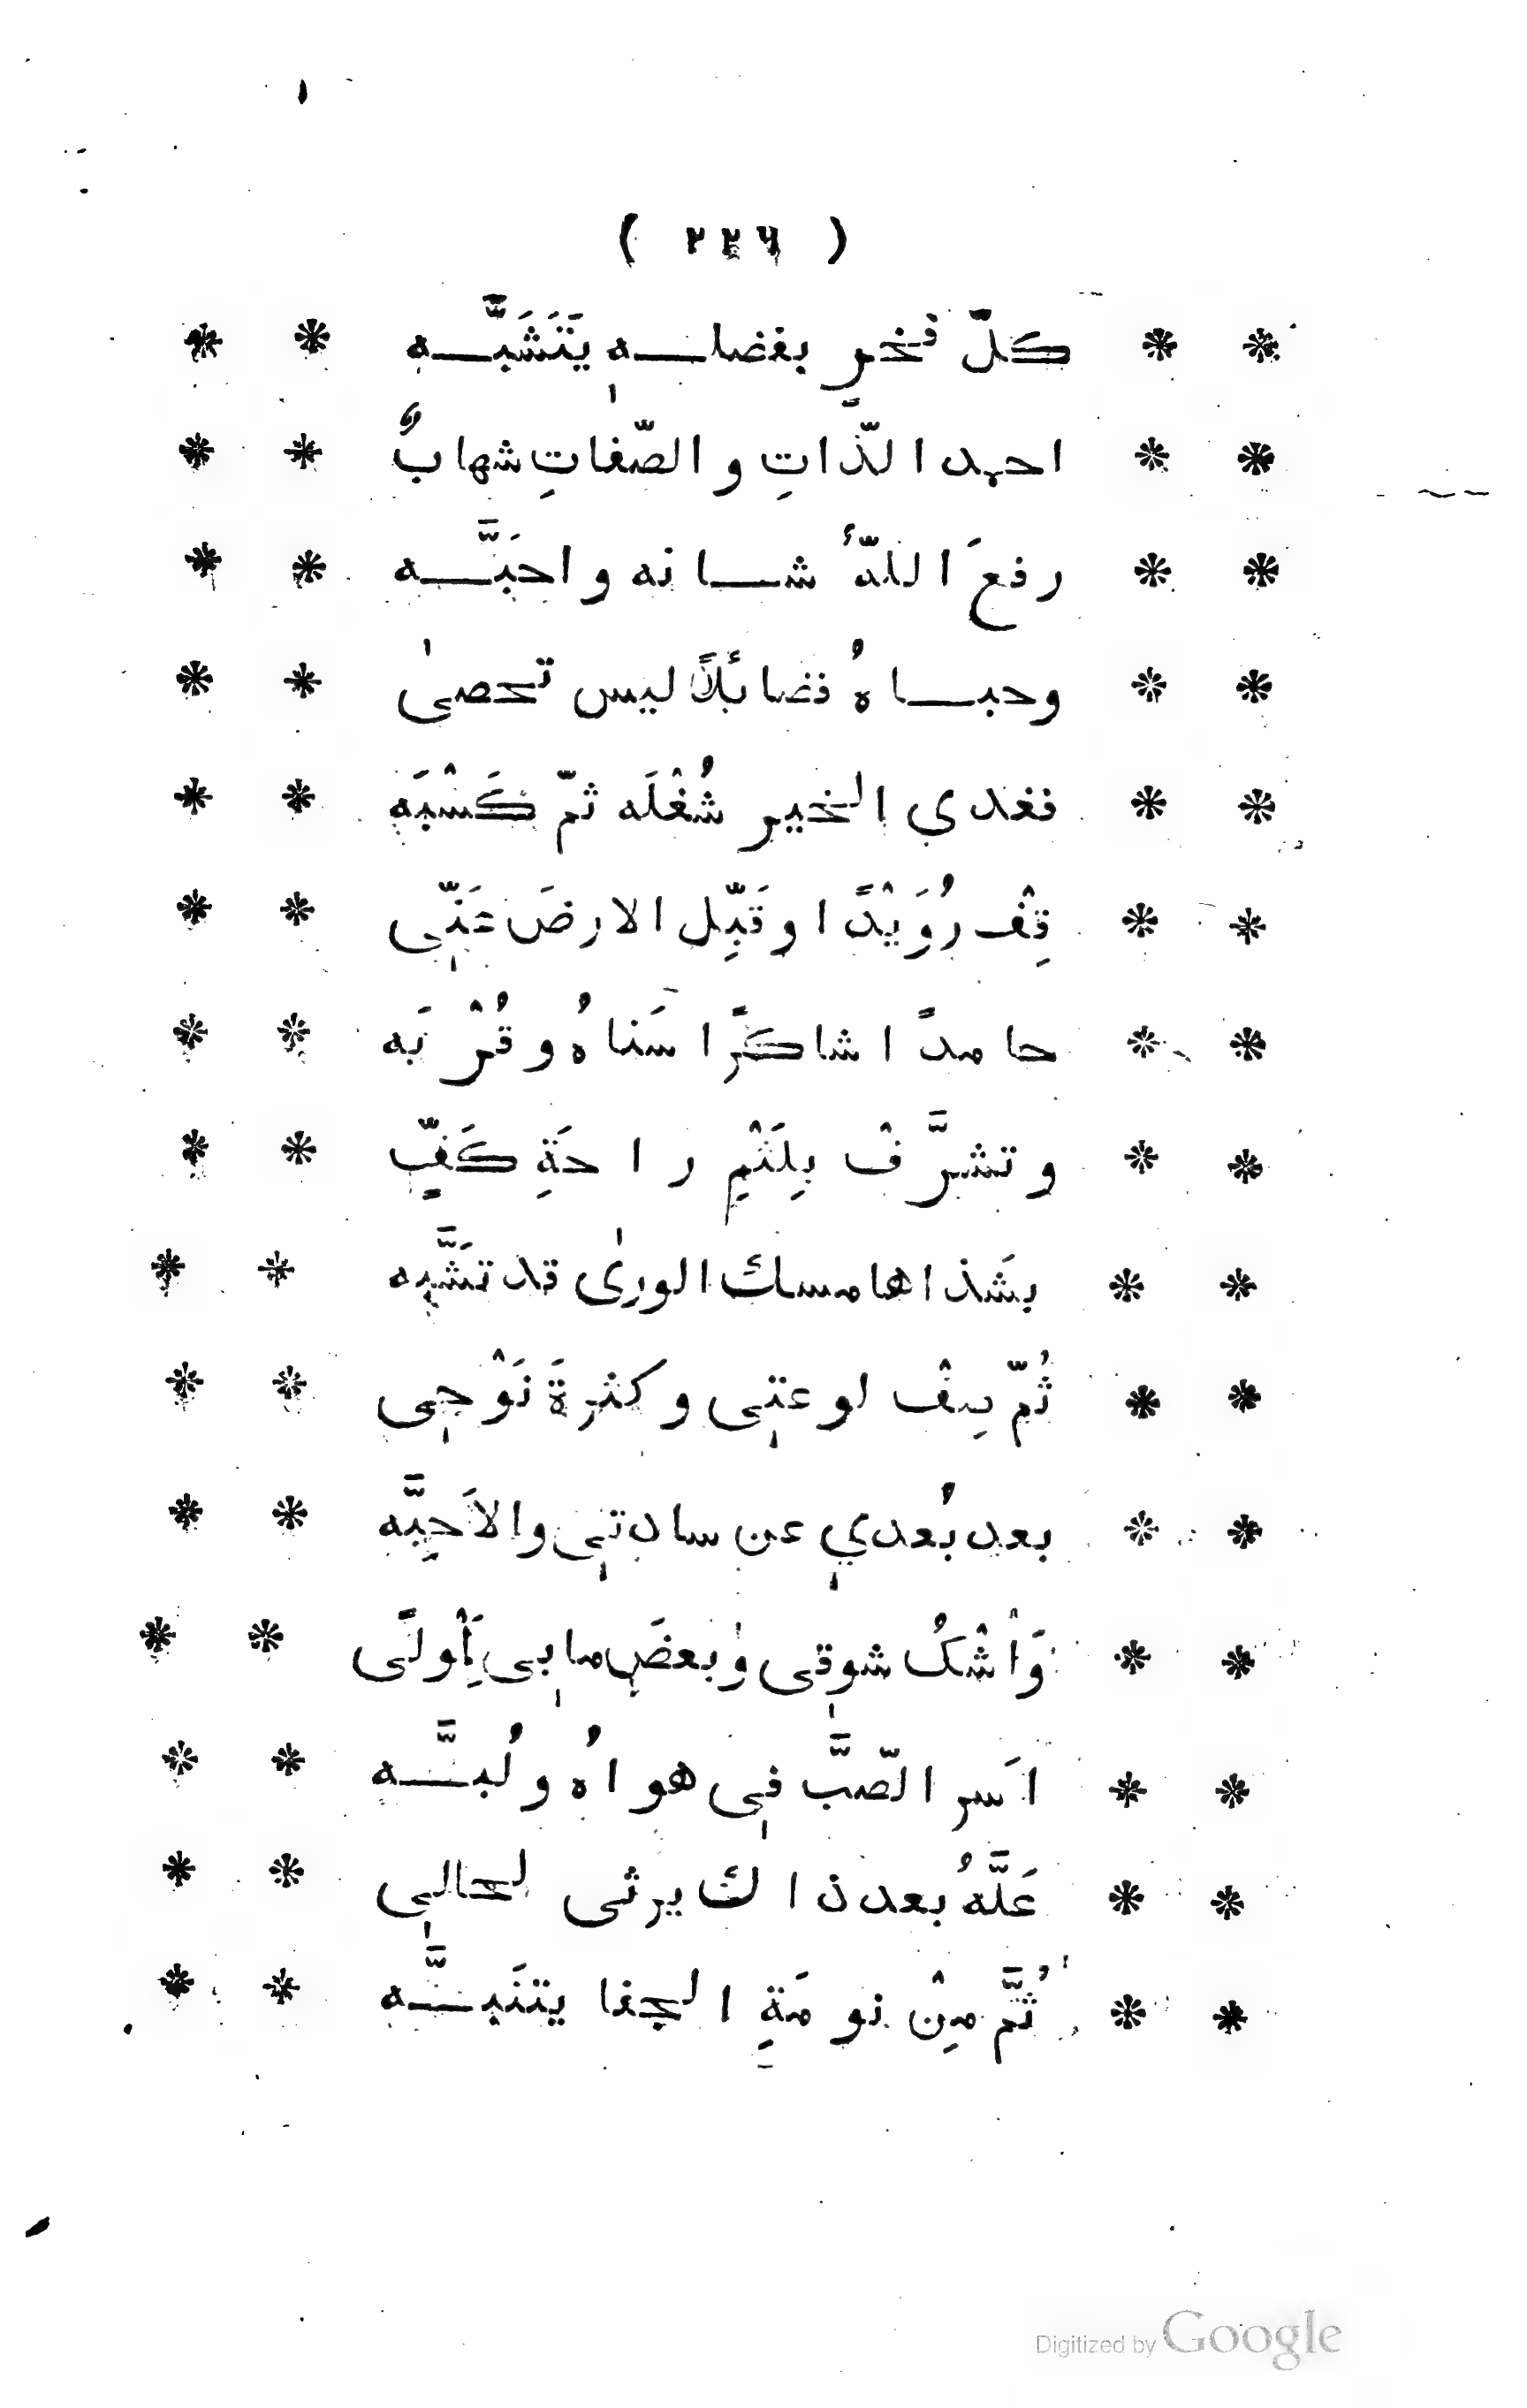 ( ٢٢٦ )
* * كلّ فخرٍ بفضلـــهٖ يَتَشَبَّـــه * *
* * احمد الذّاتِ والصّفاتِ شهابٌ * *
* * رفعَ اللّهُ شـــانه واحَبَّـــه * *
* * وحبـــاهُ فضائلاً ليس تحصىٰ * *
* * فغدى الخير شُغْلَه ثمّ كَسْبَه * *
* * قِفْ رُوَيْدًا وقَبِّل الارضَ عَنِّى * *
* * حامدًا شاكرًا سَناهُ وقُرْبَه * *
* * وتشرَّفْ بِلَثْمِ راحَةِ كَفٍّ * *
* * بشَذاها مسك الورىٰ قد تَشَّبه * *
* * ثُمّ صِفْ لوعتى وكثرةَ نَوْحِى * *
* * بعد بُعدي عن سادتى والاَحِبَّه * *
* * وَاْشْكُ شوقى وبعضَ مابى لِمَوْلًى * *
* * اَسر الصّبَّ فى هواهُ ولُبَّـــه * *
* * عَلَّهُ بعد ذاك يرثى لحالى * *
* * ثُمَّ مِنْ نومَةِ الجفا يتنَبَّـــه * *
Digitized by Google